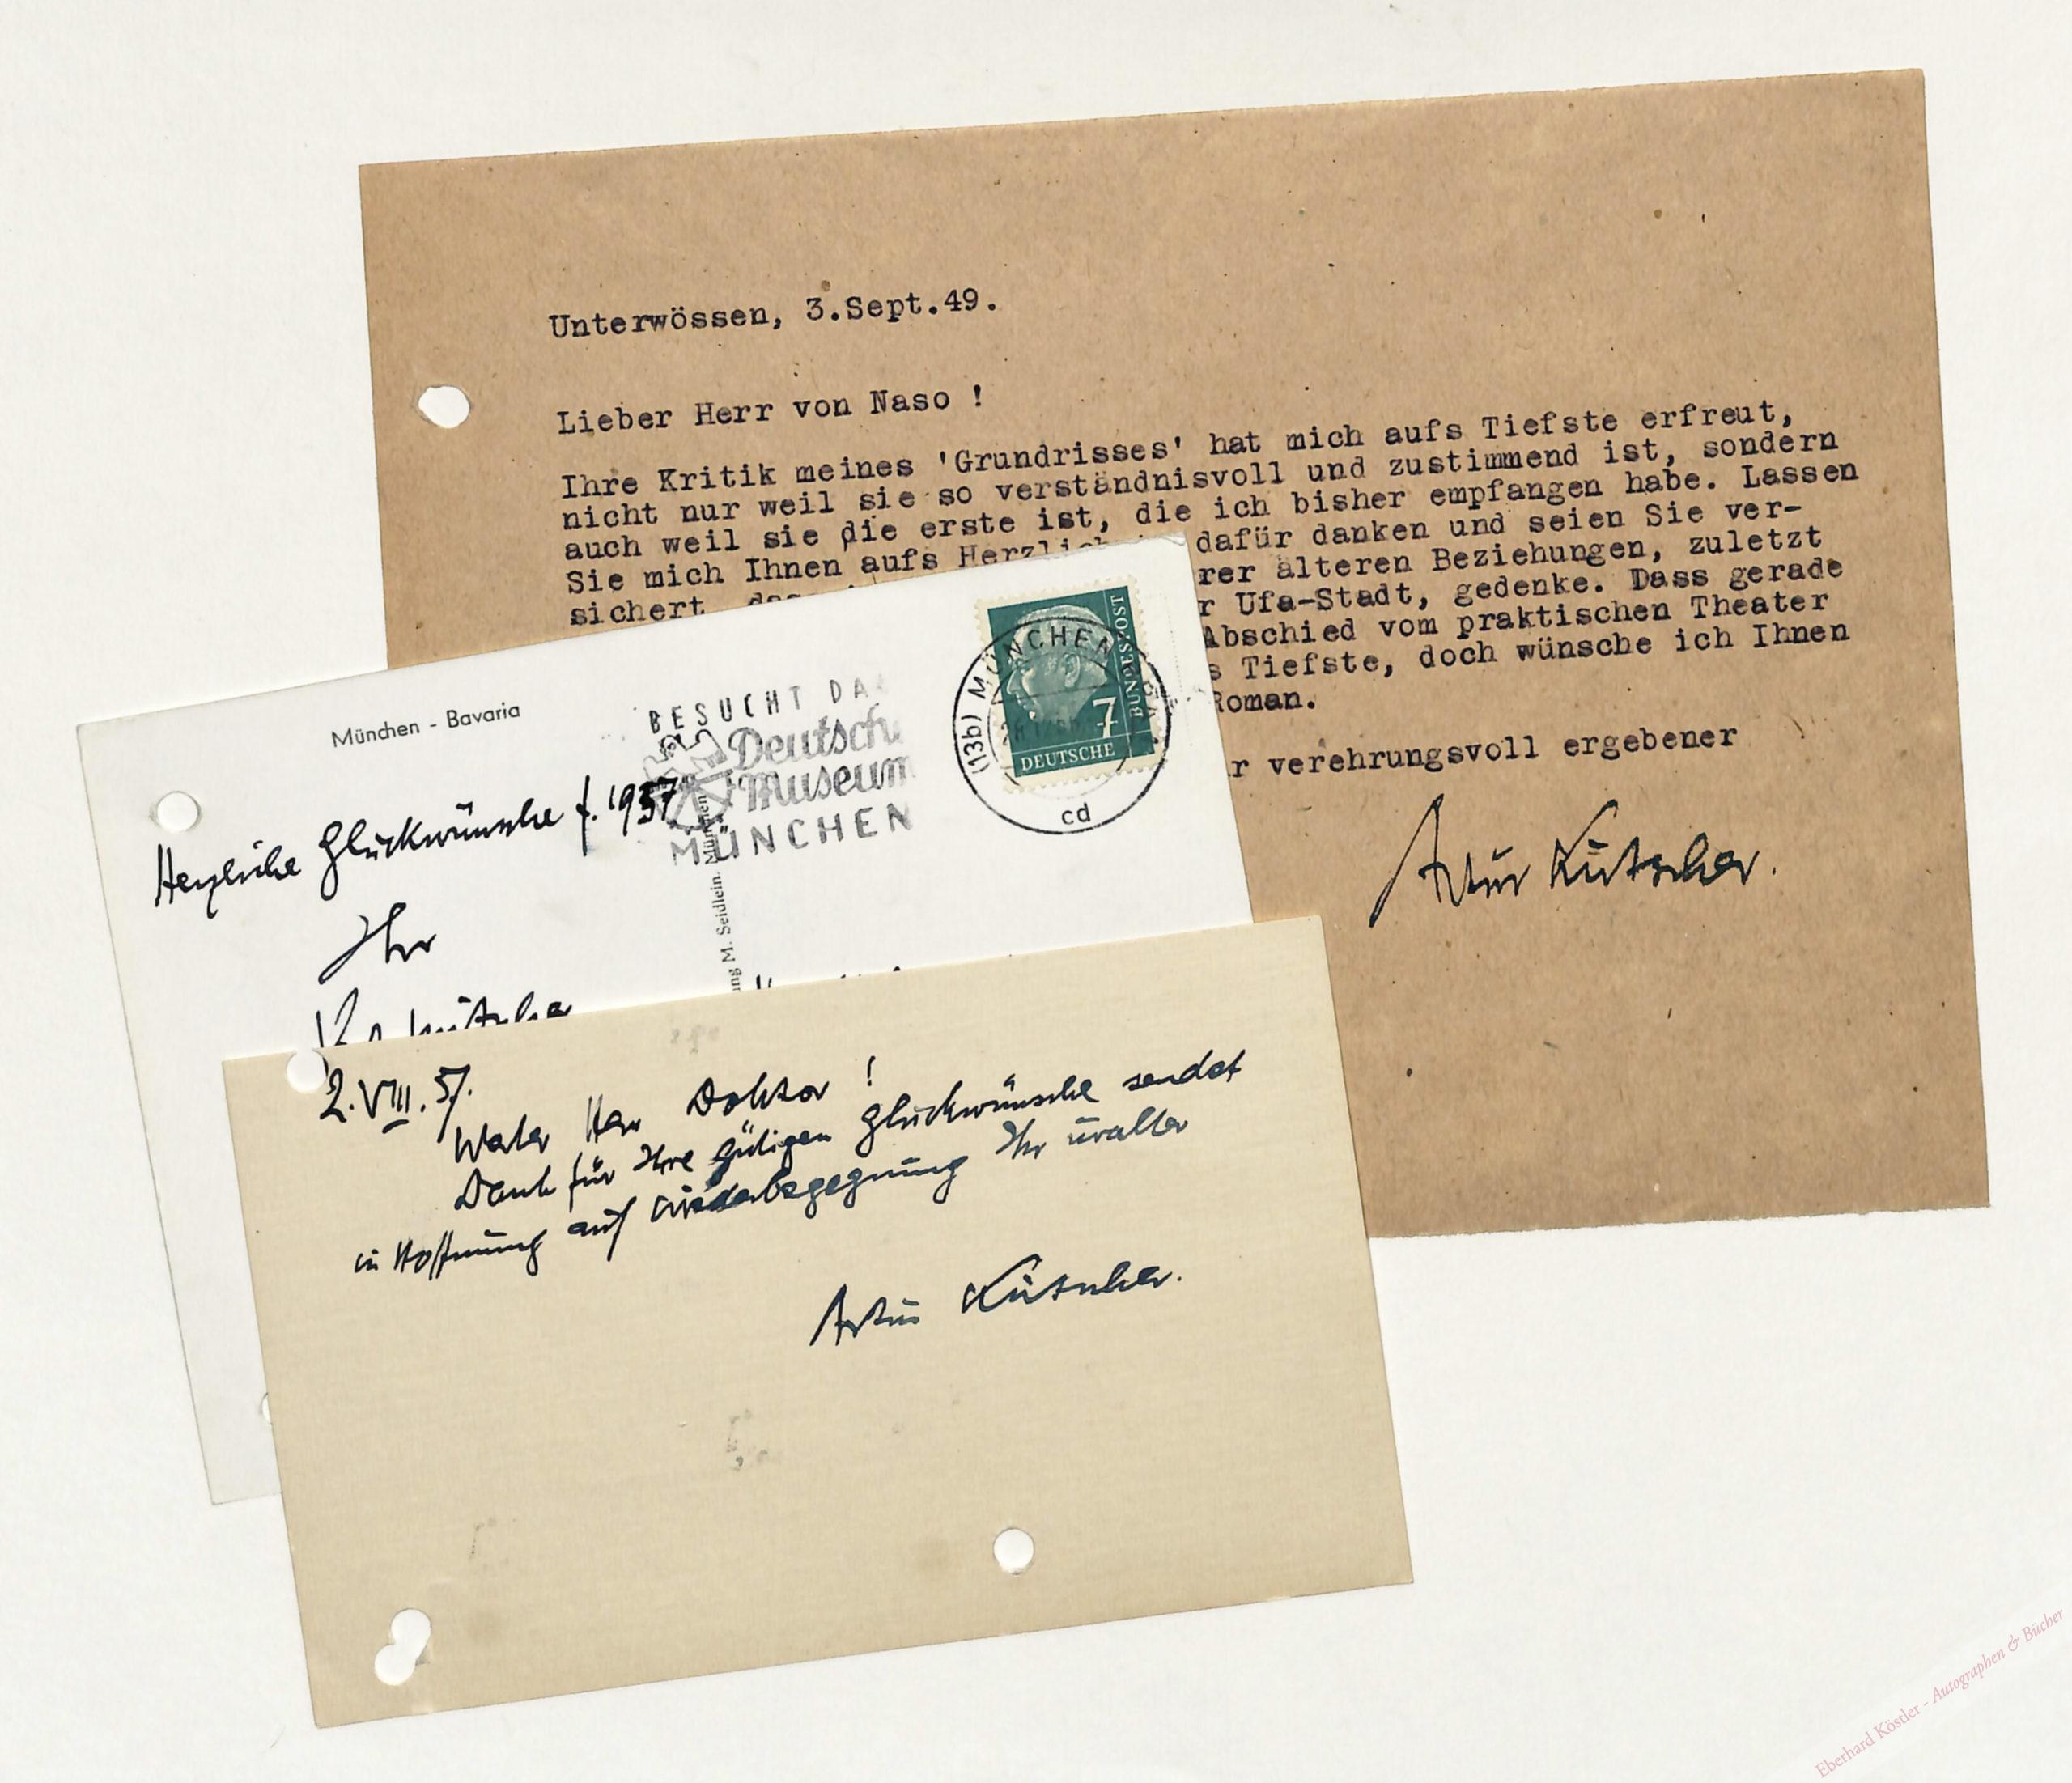 Unterwössen, 3.Sept.49.
Lieber Herr von Naso !
Ihre Kritik meines 'Grundrisses' hat mich aufs Tiefste erfreut,
nicht nur weil sie so verständnisvoll und zustimmend ist, sondern
auch weil sie die erste ist, die ich bisher empfangen habe. Lassen
Sie mich Ihnen aufs dafür danken und seien Sie ver-
sichert rer älteren Beziehungen, zuletzt
r Ufa-Stadt, gedenke. Dass gerade
Abschied vom praktischen Theater
s Tiefste, doch wünsche ich Ihnen
Roman.
r verehrungsvoll ergebener
Artur Kutscher.
München - Bavaria
BESUCHT DA
Deutsch
Museum
MÜNCHEN
(13b) MÜNCHEN
cd
DEUTSCHE
BUNDESPOST
7
Herzliche Glückwünsche f. 1957
Ihr
ng M. Seidlein. München
2.VIII.57.
Werter Herr Doktor !
Dank für Ihre gütigen Glückwünsche sendet
in Hoffnung auf Wiederbegegnung Ihr uralter
Artur Kutscher.
Eberhard Köstler - Autographen & Bücher